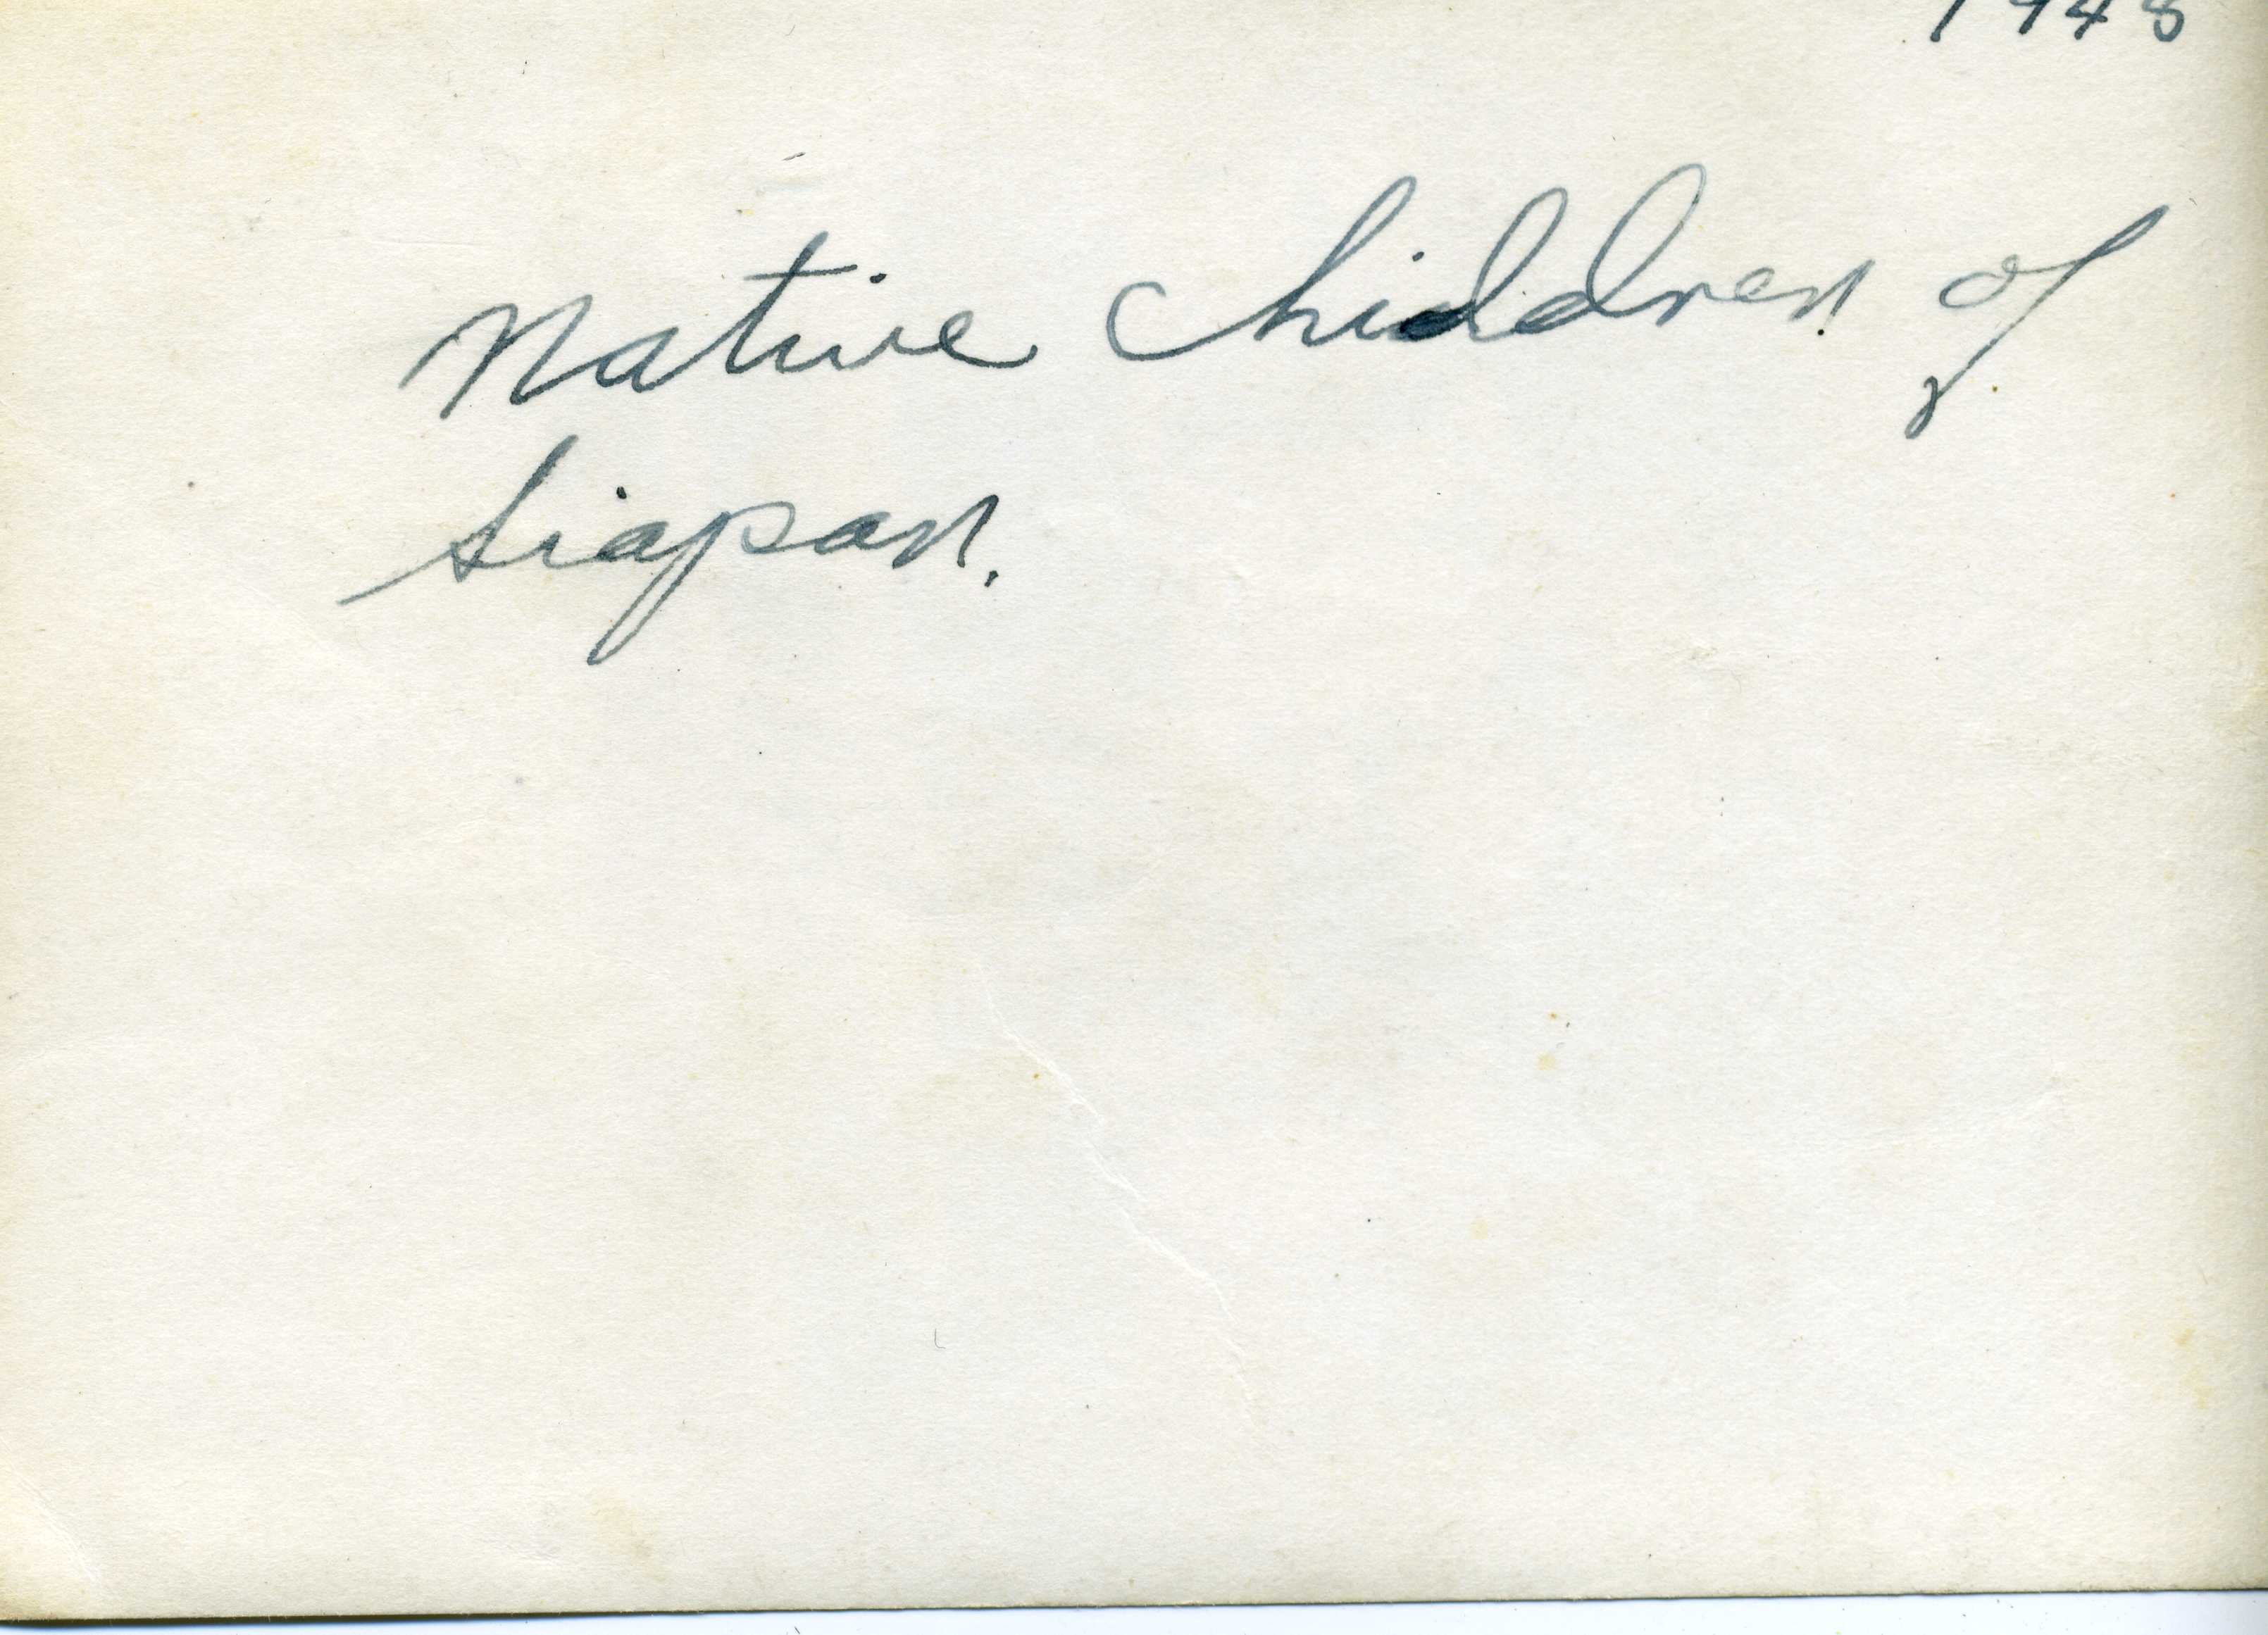 1948
Native Children of
Siapan.